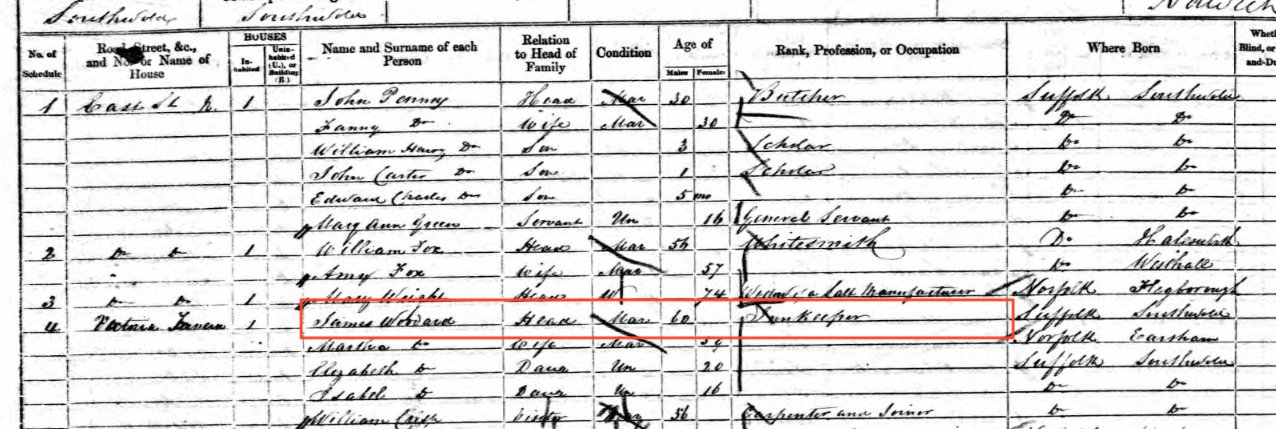 Southwold Southwold
No. of Schedule Road, Street, &c., and No. or Name of House HOUSES Inhabited Uninhabited (U.), or Building (B.) Name and Surname of each Person Relation to Head of Family Condition Age of Males Females Rank, Profession, or Occupation Where Born Whether Blind, or and-Du
1 East St 1 John Penny Head Mar 30 Butcher Suffolk Southwold
Fanny Do Wife Mar 30 Do Do
William Harry Do Son 3 Scholar Do Do
John Carter Do Son 1 Scholar Do Do
Edward Charles Do Son 5 mo Do Do
Mary Ann Green Servant Un 16 General Servant Do Do
2 Do Do 1 William Fox Head Mar 56 Whitesmith Do Halesworth
Amy Fox Wife Mar 57 Do Westhall
3 Do Do 1 Mary Wright Head W 74 Widow of a Salt Manufacturer Norfolk
4 Victoria Tavern 1 James Woodard Head Mar 60 Innkeeper Suffolk Southwold
Martha Do Wife Mar 59 Norfolk Earsham
Elizabeth Do Daur Un 20 Suffolk Southwold
Isabel Do Daur Un 16 Do Do
William Crisp Visitor Mar 56 Carpenter and Joiner Do Do